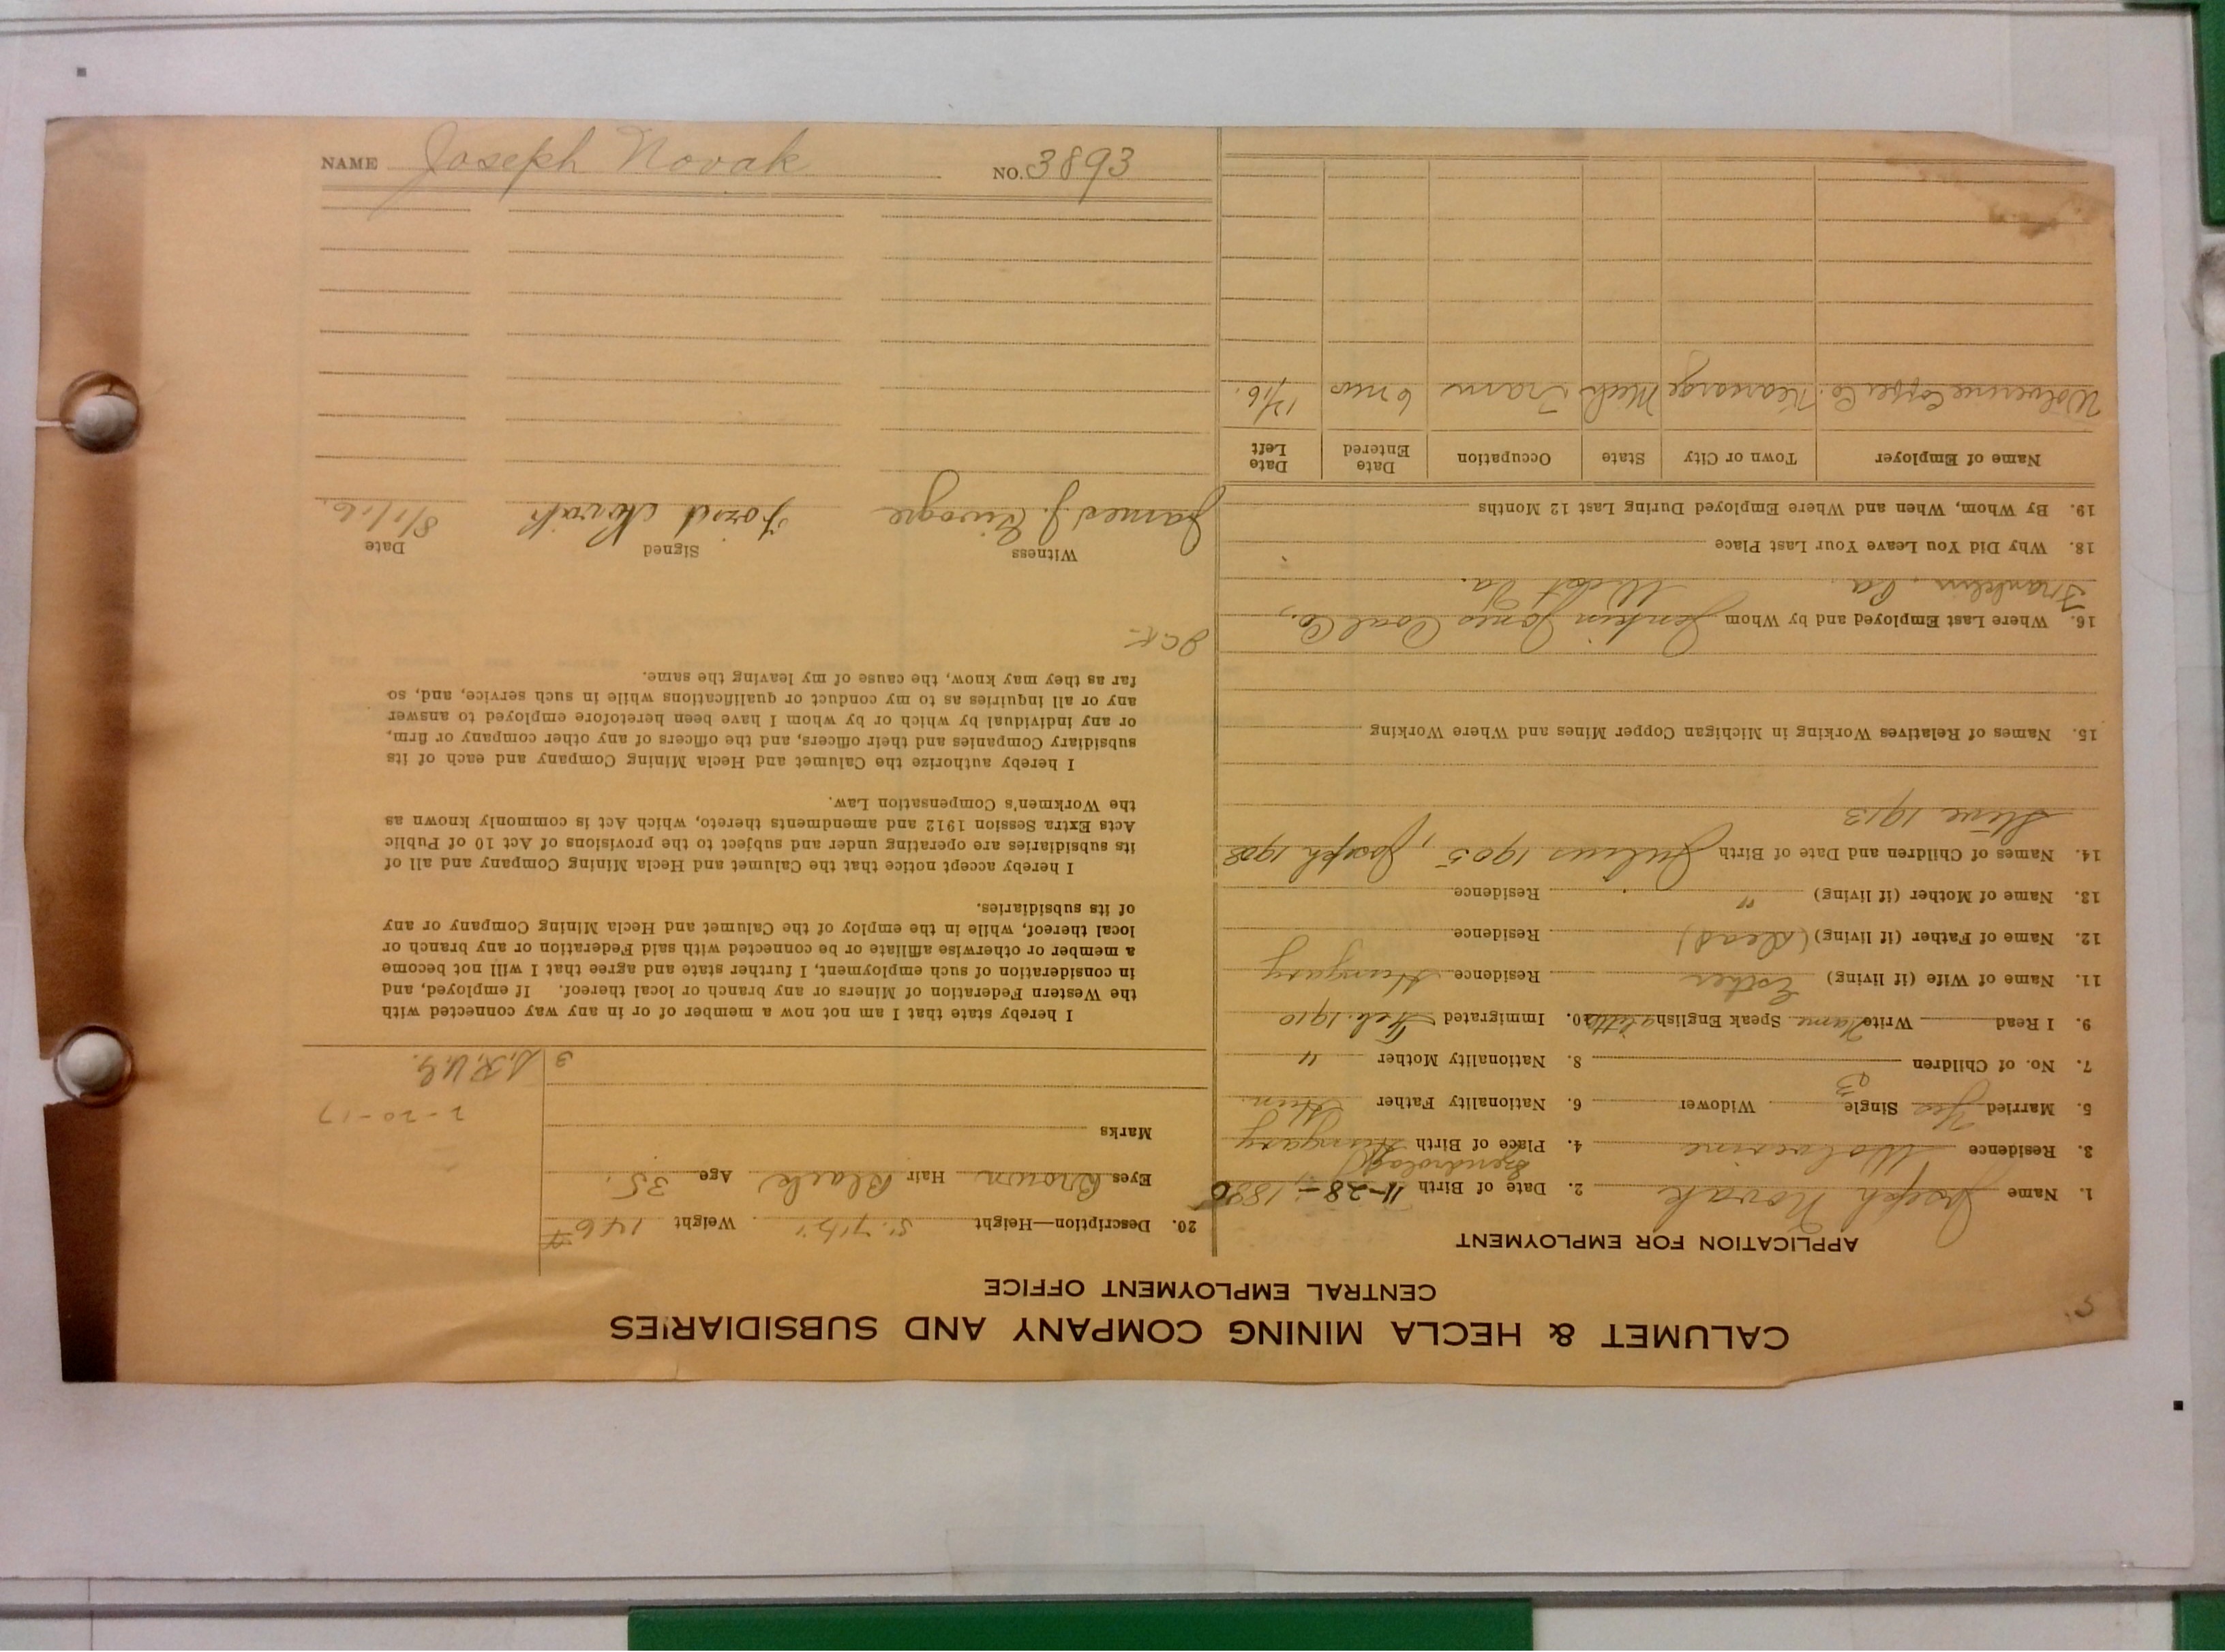 CALUMET & HECLA MINING COMPANY AND SUBSIDIARIES
CENTRAL EMPLOYMENT OFFICE
APPLICATION FOR EMPLOYMENT
1. Name Joseph Novak 2. Date of Birth 11-28-1880
3. Residence Wolverine 4. Place of Birth Hungary
5. Married Yes Single Widower 6. Nationality Father Hun.
7. No. of Children 3 8. Nationality Mother "
9. I Read Write Name Speak English a little 10. Immigrated Feb. 1910
11. Name of Wife (if living) Esther Residence Hungary
12. Name of Father (if living) (dead) Residence
13. Name of Mother (if living) " Residence
14. Names of Children and Date of Birth Julius 1905, Joseph 1908
Steve 1913
15. Names of Relatives Working in Michigan Copper Mines and Where Working
16. Where Last Employed and by Whom Jenkin Jones Coal Co.,
Franklin, Pa. West Va.
18. Why Did You Leave Your Last Place
19. By Whom, When and Where Employed During Last 12 Months
Name of Employer Town or City State Occupation Date Entered Date Left
Wolverine Copper Co. Kearsarge Mich Tram 6 mos
20. Description—Height 5' 7½" Weight 146#
Eyes Brown Hair Black Age 35.
Marks
2-20-17
3
I hereby state that I am not now a member of or in any way connected with
the Western Federation of Miners or any branch or local thereof. If employed, and
in consideration of such employment, I further state and agree that I will not become
a member or otherwise affiliate or be connected with said Federation or any branch or
local thereof, while in the employ of the Calumet and Hecla Mining Company or any
of its subsidiaries.
I hereby accept notice that the Calumet and Hecla Mining Company and all of
its subsidiaries are operating under and subject to the provisions of Act 10 of Public
Acts Extra Session 1912 and amendments thereto, which Act is commonly known as
the Workmen's Compensation Law.
I hereby authorize the Calumet and Hecla Mining Company and each of its
subsidiary Companies and their officers, and the officers of any other company or firm,
or any individual by which or by whom I have been heretofore employed to answer
any or all inquiries as to my conduct or qualifications while in such service, and, so
far as they may know, the cause of my leaving the same.
Witness Signed Date
James J. Novak 8/1/16.
NAME Joseph Novak NO. 3893